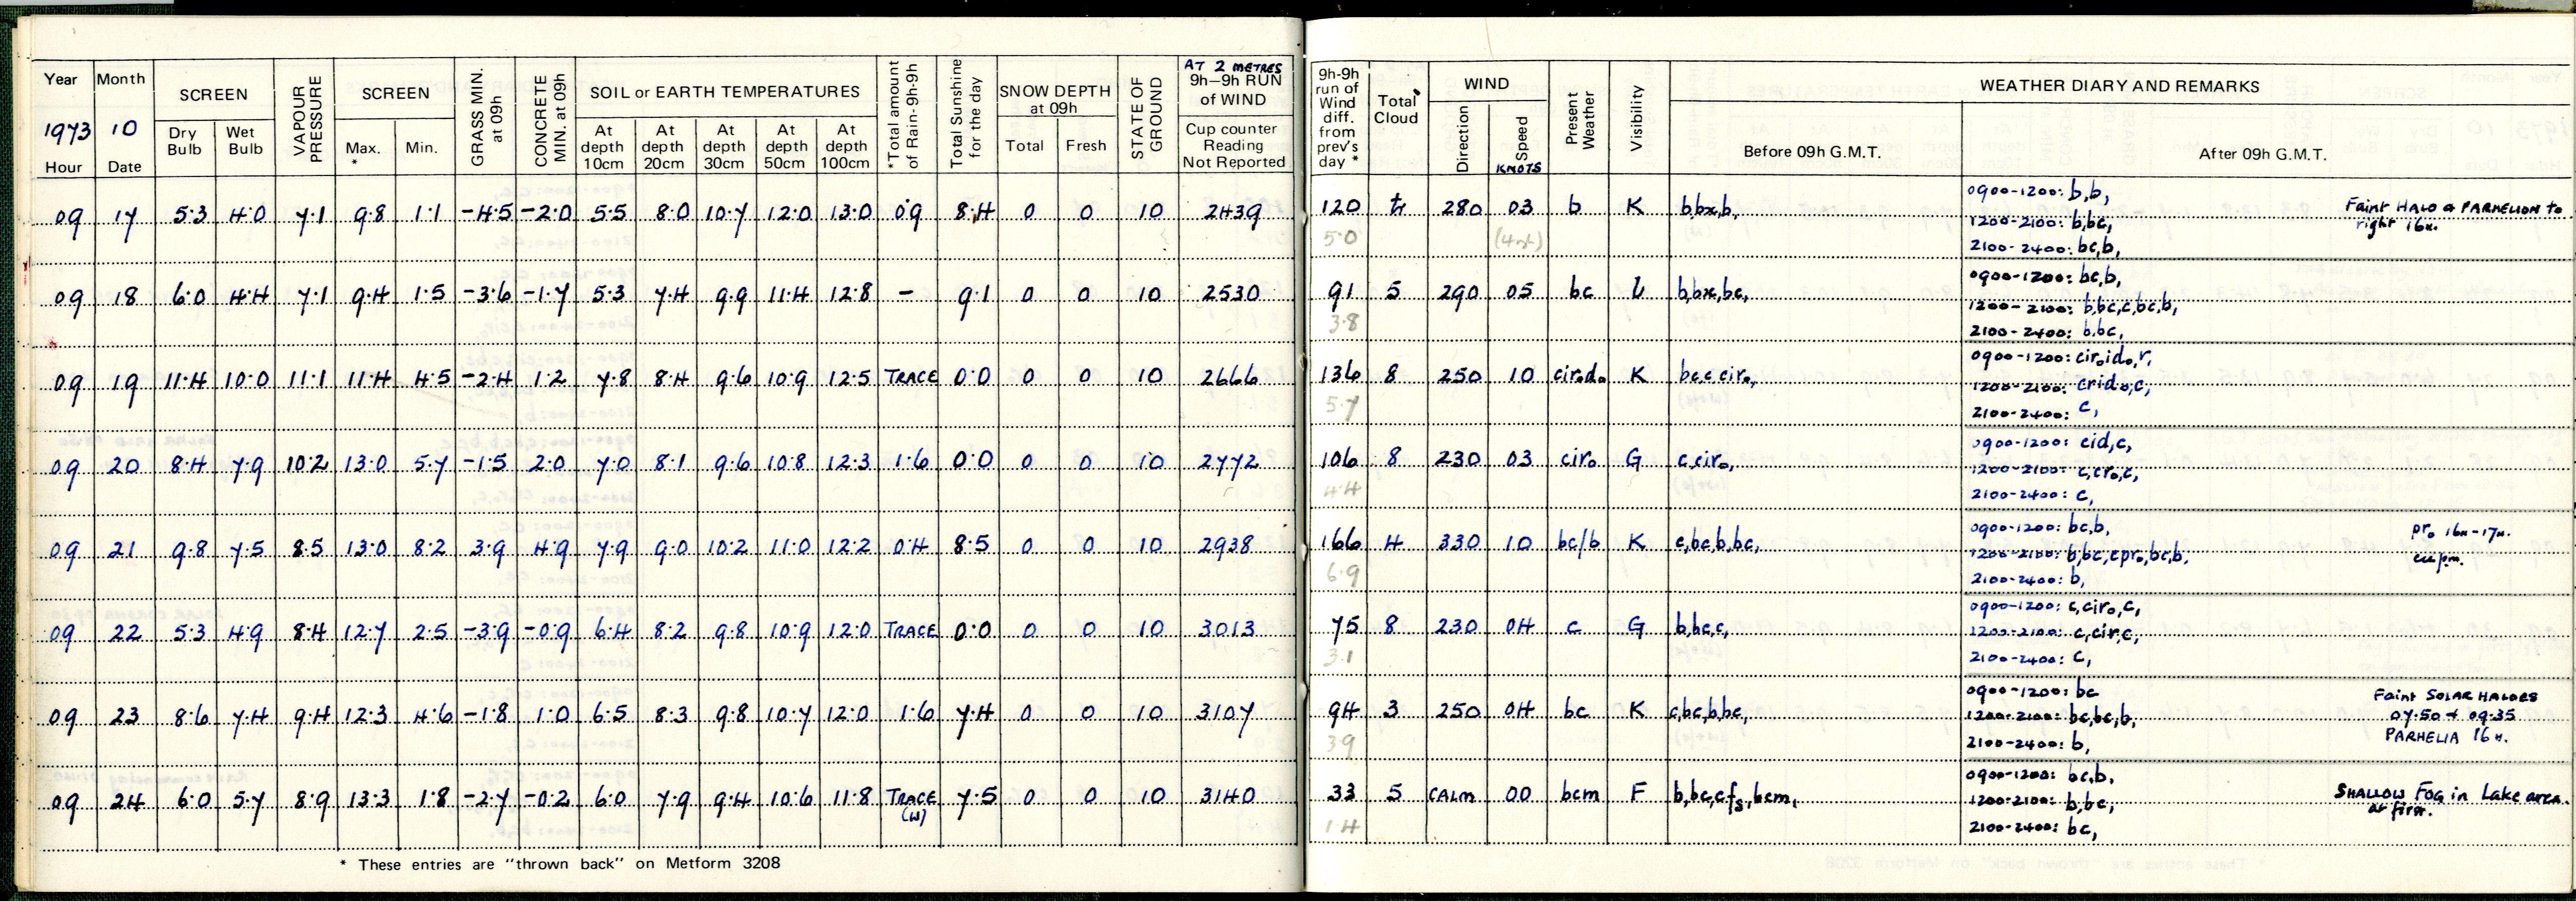 Year Month SCREEN VAPOUR PRESSURE SCREEN GRASS MIN. at 09h CONCRETE MIN. at 09h SOIL or EARTH TEMPERATURES *Total amount of Rain-9h-9h Total Sunshine for the day SNOW DEPTH at 09h STATE OF GROUND AT 2 METRES 9h–9h RUN of WIND
1973 10 Dry Bulb Wet Bulb Max. * Min. At depth 10cm At depth 20cm At depth 30cm At depth 50cm At depth 100cm Total Fresh Cup counter Reading Not Reported
Hour Date
09 17 5·3 4·0 7·1 9·8 1·1 -4·5 -2·0 5·5 8·0 10·7 12·0 13·0 0·9 8·4 0 0 10 2439
09 18 6·0 4·4 7·1 9·4 1·5 -3·6 -1·7 5·3 7·4 9·9 11·4 12·8 - 9·1 0 0 10 2530
09 19 11·4 10·0 11·1 11·4 4·5 -2·4 1·2 7·8 8·4 9·6 10·9 12·5 TRACE 0·0 0 0 10 2666
09 20 8·4 7·9 10·2 13·0 5·7 -1·5 2·0 7·0 8·1 9·6 10·8 12·3 1·6 0·0 0 0 10 2772
09 21 9·8 7·5 8·5 13·0 8·2 3·9 4·9 7·9 9·0 10·2 11·0 12·2 0·4 8·5 0 0 10 2938
09 22 5·3 4·9 8·4 12·7 2·5 -3·9 -0·9 6·4 8·2 9·8 10·9 12·0 TRACE 0·0 0 0 10 3013
09 23 8·6 7·4 9·4 12·3 4·6 -1·8 1·0 6·5 8·3 9·8 10·7 12·0 1·6 7·4 0 0 10 3107
09 24 6·0 5·7 8·9 13·3 1·8 -2·7 -0·2 6·0 7·9 9·4 10·6 11·8 TRACE (W) 7·5 0 0 10 3140
* These entries are "thrown back" on Metform 3208
9h-9h run of Wind diff. from prev's day * Total Cloud WIND Present Weather Visibility WEATHER DIARY AND REMARKS
Direction Speed KNOTS Before 09h G.M.T. After 09h G.M.T.
0900-1200: b,b,
120 280 03 b K b,bx,b, Faint HALO & PARHELION to
1200-2100: b,bc, right 16H.
5·0
2100-2400: bc,b,
0900-1200: bc,b,
91 5 290 05 bc b,bx,bc,
1200-2100: b,bc,c,bc,b,
3·8
2100-2400: b,bc,
0900-1200: cir₀id₀,r,
136 8 250 10 cir₀d₀ K bc,c,cir₀,
1200-2100: crid₀,c,
5·7
2100-2400: c,
0900-1200: cid,c,
106 8 230 03 cir₀ G c,cir₀,
1200-2100: c,cr₀,c,
4·4
2100-2400: c,
0900-1200: bc,b, pr₀ 16H-17H.
166 4 330 10 bc/b K c,bc,b,bc,
1200-2100: b,bc,cpr₀,bc,b,
6·9
2100-2400: b,
0900-1200: c,cir₀,c,
75 8 230 04 c G b,bc,c,
1200-2100: c,cir,c,
3·1
2100-2400: c,
0900-1200: bc Faint SOLAR HALOES
94 3 250 04 bc K c,bc,b,bc, 07·50 & 09·35
1200-2100: bc,bc,b,
PARHELIA 16H.
3·9
2100-2400: b,
0900-1200: bc,b,
33 5 CALM 00 bcm F b,bc,cfs,bcm, SHALLOW FOG in Lake area.
1200-2100: b,bc, at first.
1·4
2100-2400: bc,